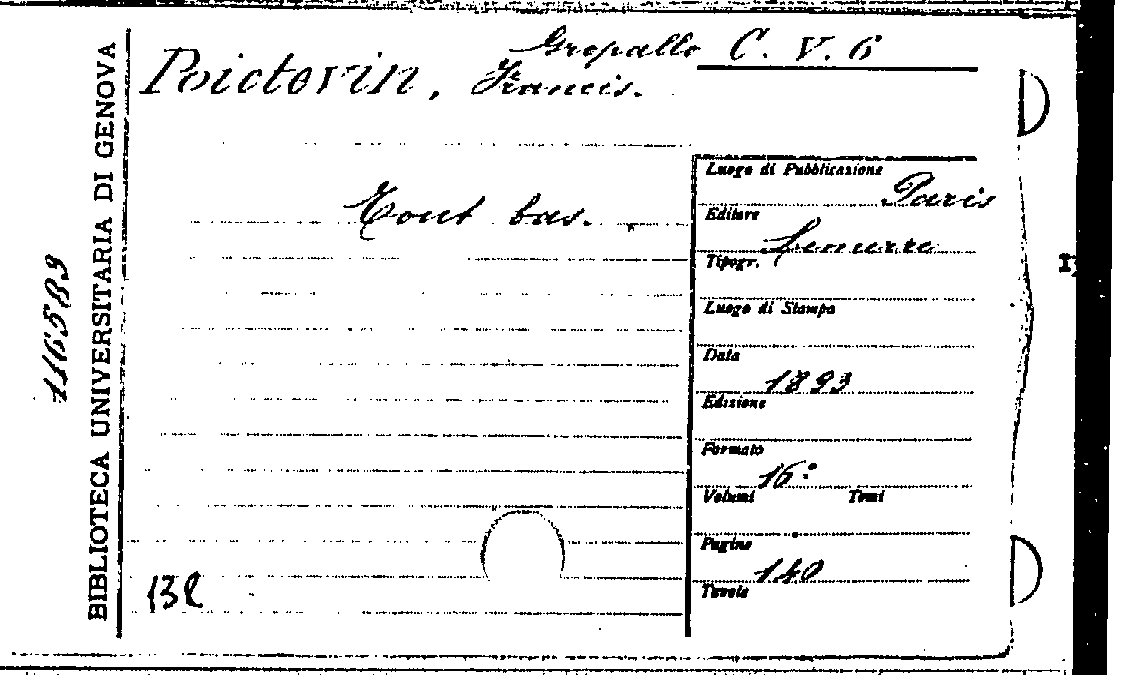 Gropallo C. V. 6
Poictevin, Francis.
Tout bas.
BIBLIOTECA UNIVERSITARIA DI GENOVA
116583
Luogo di Pubblicazione
Paris
Editore
Lemerre
Tipogr.
Luogo di Stampa
Data
1893
Edizione
Formato
16°
Volumi Tomi
Pagine
140
Tavole
132